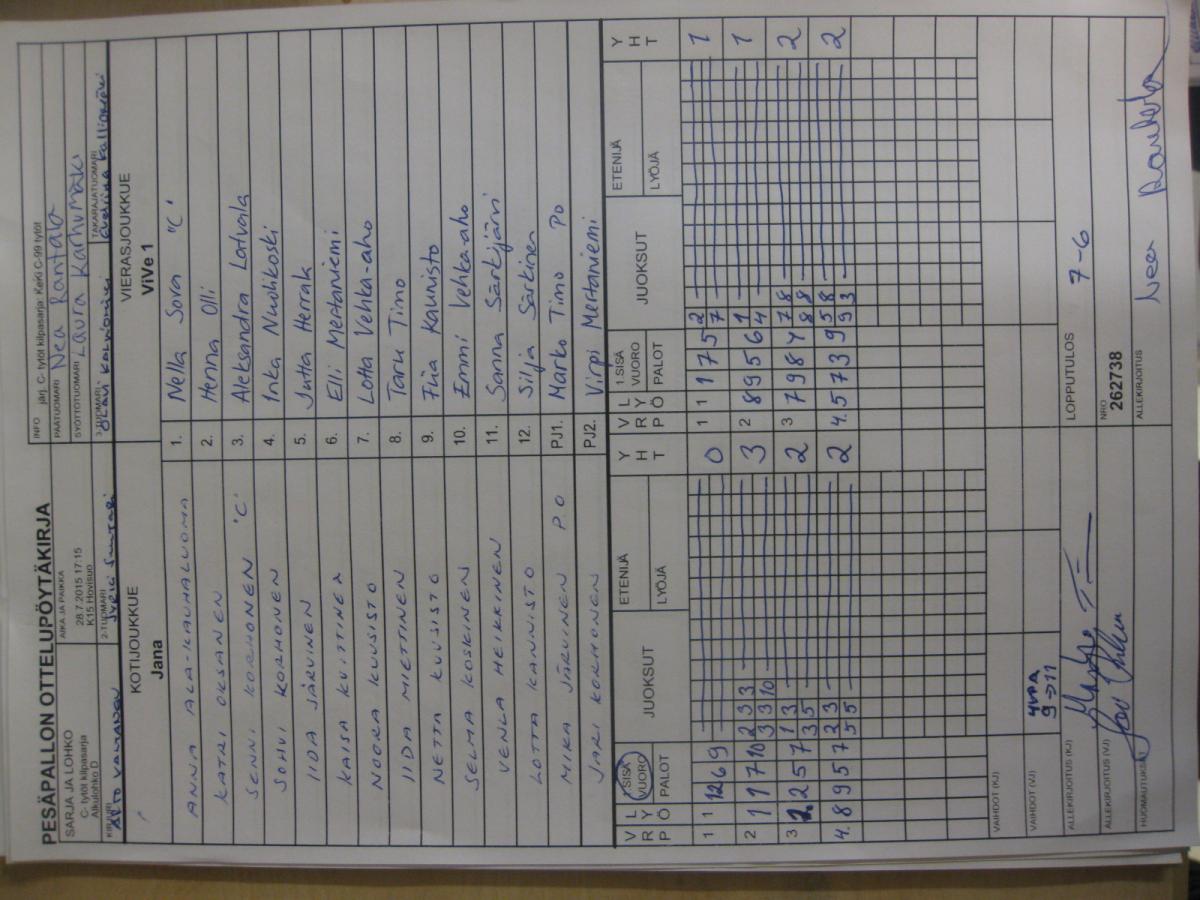 PESÄPALLON OTTELUPÖYTÄKIRJA
INFO järj. C- tytöt kilpasarja: Kerki C-99 tytöt
SARJA JA LOHKO
C- tytöt kilpasarja
Alkulohko D
AIKA JA PAIKKA
28.7.2015 17:15
K15 Hovisuo
PÄÄTUOMARI Nea Rantala
SYÖTTÖTUOMARI Laura Karhumäki
KIRJURI
2-TUOMARI
3-TUOMARI
TAKARAJATUOMARI
KOTIJOUKKUE
Jana
VIERASJOUKKUE
ViVe 1
ANNA ALA-KAUHALUOMA 1. Nella Sova "C"
KATRI OKSANEN 2. Henna Olli
SENNI KORHONEN 'C' 3. Aleksandra Latvala
SOHVI KORHONEN 4. Inka Nuolikoski
IIDA JÄRVINEN 5. Jutta Herrala
KAISA KUITTINEN 6. Elli Mertaniemi
NOORA KUUSISTO 7. Lotta Vehka-aho
IIDA MIETTINEN 8. Taru Timo
NETTA KUUSISTO 9. Fiia Kaunisto
SELMA KOSKINEN 10. Emmi Vehka-aho
VENLA HEIKKINEN 11. Sanna Särkijärvi
LOTTA KANNISTO 12. Silja Särkinen
MIKA JÄRVINEN PO PJ1. Marko Timo PO
JARI KORHONEN PJ2. Virpi Mertaniemi
V R P L Y Ö 1.SISÄ VUORO PALOT JUOKSUT ETENIJÄ LYÖJÄ Y H T V R P L Y Ö 1.SISÄ VUORO PALOT JUOKSUT ETENIJÄ LYÖJÄ Y H T
1 1 12 6 9 0 1 1 1 7 5 2 7 1
2 1 1 7 10 2 3 3 3 3 10 3 2 8 9 5 6 1 4 1
3 2 2 5 7 1 3 3 5 2 3 7 9 8 4 7 8 8 8 2
4. 8 9 5 7 2 3 5 5 2 4. 5 7 3 9 5 8 9 3 2
VAIHDOT (KJ)
VAIHDOT (VJ) 4VPA 9→11
ALLEKIRJOITUS (KJ)
LOPPUTULOS 7-6
ALLEKIRJOITUS (VJ)
NRO 262738
HUOMAUTUKSIA
ALLEKIRJOITUS Nea Rantala